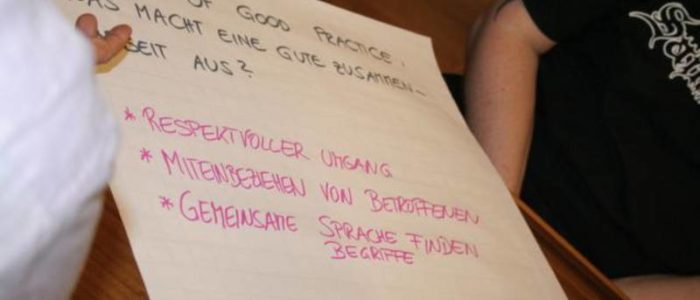 OF GOOD PRACTICE.
WAS MACHT EINE GUTE ZUSAMMEN-
ARBEIT AUS?
* RESPEKTVOLLER UMGANG
* MITEINBEZIEHEN VON BETROFFENEN
* GEMEINSAME SPRACHE FINDEN
BEGRIFFE